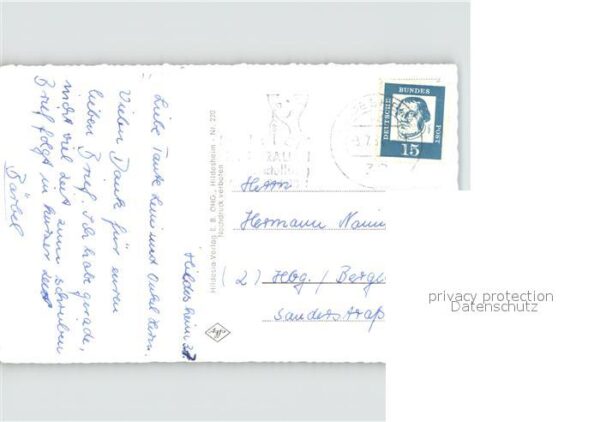 Hildesheim 3.7
Liebe Tante Leni und Onkel Herm.
Vielen Dank für euren
lieben Brief. Ich habe gerade,
nicht viel Zeit zum schreiben
Brief folgt in kurzer Zeit
Bärbel
Hildesia-Verlag E. B. OHG., Hildesheim Nr. 220
Nachdruck verboten
Agfa
DEUTSCHE BUNDES POST
15
Herrn
Hermann
(2) Hbg. / Berge
Sanderstraß
privacy protection
Datenschutz